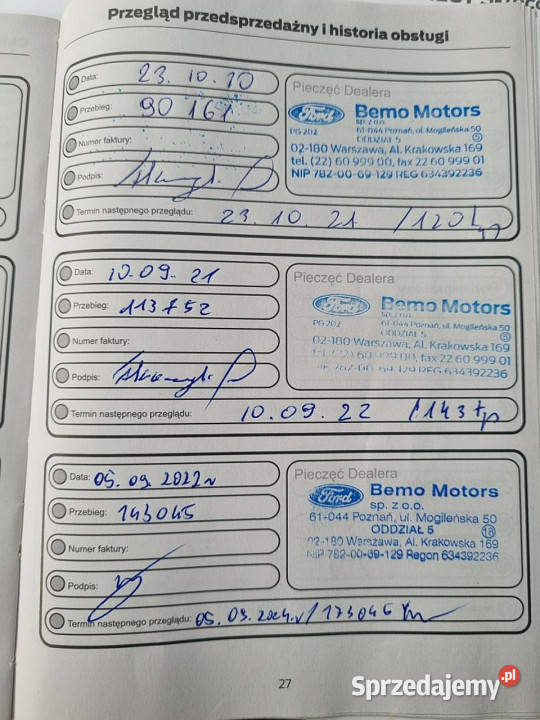 Przegląd przedsprzedażny i historia obsługi
Data: 23.10.20
Przebieg: 90 161
Numer faktury:
Podpis:
Termin następnego przeglądu: 23.10.21 / 120
Pieczęć Dealera
Ford Bemo Motors
sp. z o.o.
PG 202 61-044 Poznań, ul. Mogileńska 50
ODDZIAŁ 5 5
02-180 Warszawa, Al. Krakowska 169
tel. (22) 60 999 00, fax 22 60 999 01
NIP 782-00-69-129 REG 634392236
Data: 10.09.21
Przebieg: 113752
Numer faktury:
Podpis:
Termin następnego przeglądu: 10.09.22 / 143
Pieczęć Dealera
Ford Bemo Motors
sp. z o.o.
PG 202 61-044 Poznań, ul. Mogileńska 50
ODDZIAŁ 5 5
02-180 Warszawa, Al. Krakowska 169
tel. (22) 60 999 00, fax 22 60 999 01
782-00-69-129 REG 634392236
Data: 05.09.2022
Przebieg: 143045
Numer faktury:
Podpis:
Termin następnego przeglądu: 05.09. / 173045
Pieczęć Dealera
Ford Bemo Motors
sp. z o.o.
61-044 Poznań, ul. Mogileńska 50
ODDZIAŁ 5 18
02-180 Warszawa, Al. Krakowska 169
NIP 782-00-69-129 Regon 634392236
27
Sprzedajemy.pl